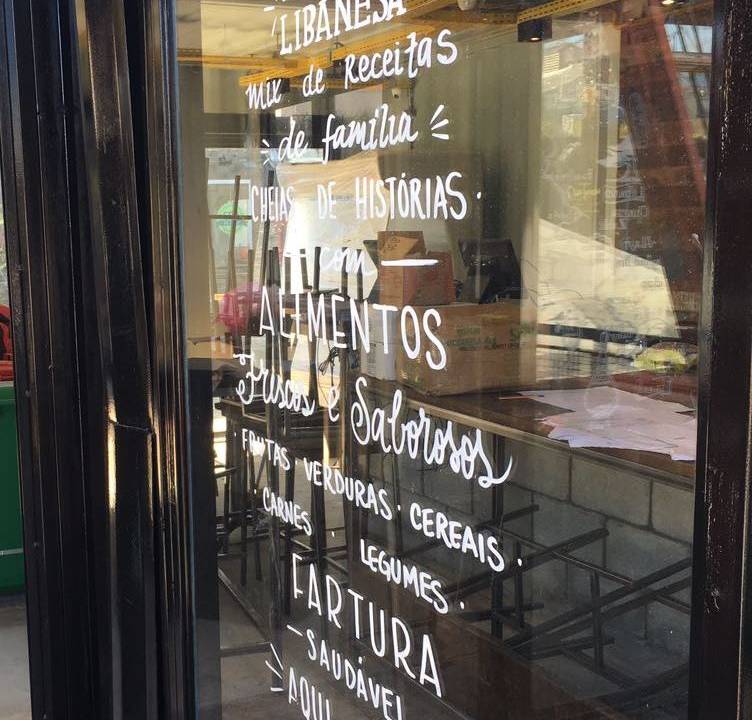 LIBANESA
mix de Receitas
de família
CHEIAS DE HISTÓRIAS.
com
ALIMENTOS
Friscos e Saborosos
· FRUTAS · VERDURAS · CEREAIS ·
· CARNES · LEGUMES ·
FARTURA
SAUDÁVEL
AQUI